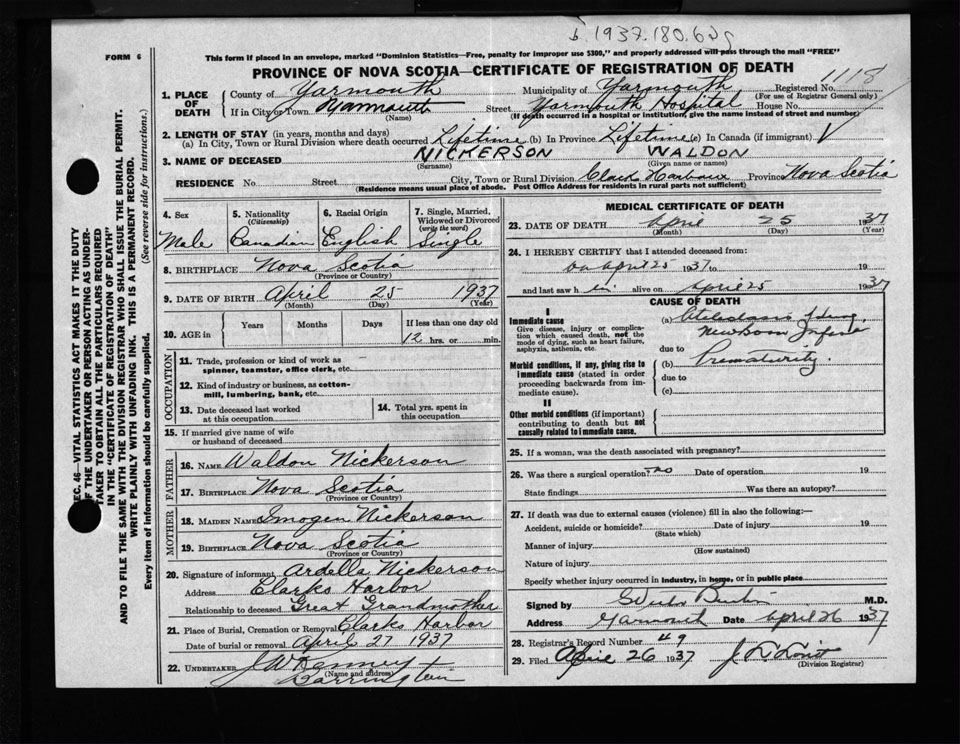 b. 1937.180.6
This form if placed in an envelope, marked "Dominion Statistics—Free, penalty for improper use $300," and properly addressed will pass through the mail "FREE"
FORM 6
PROVINCE OF NOVA SCOTIA—CERTIFICATE OF REGISTRATION OF DEATH
1118
1. PLACE OF DEATH
County of Yarmouth Municipality of Yarmouth Registered No.
(For use of Registrar General only)
If in City or Town Yarmouth Street Yarmouth Hospital House No.
(Name) (If death occurred in a hospital or institution, give the name instead of street and number)
2. LENGTH OF STAY (in years, months and days)
(a) In City, Town or Rural Division where death occurred Lifetime (b) In Province Lifetime (c) In Canada (if immigrant)
3. NAME OF DECEASED NICKERSON WALDON
(Surname) (Given name or names)
RESIDENCE No. Street City, Town or Rural Division Clark Harbour Province Nova Scotia
(Residence means usual place of abode. Post Office Address for residents in rural parts not sufficient)
4. Sex
Male
5. Nationality (Citizenship)
Canadian
6. Racial Origin
English
7. Single, Married, Widowed or Divorced (write the word)
Single
8. BIRTHPLACE Nova Scotia
(Province or Country)
9. DATE OF BIRTH April 25 1937
(Month) (Day) (Year)
10. AGE in Years Months Days If less than one day old
12 hrs. or min.
OCCUPATION
11. Trade, profession or kind of work as spinner, teamster, office clerk, etc.
12. Kind of industry or business, as cotton-mill, lumbering, bank, etc.
13. Date deceased last worked at this occupation
14. Total yrs. spent in this occupation
15. If married give name of wife or husband of deceased
FATHER
16. NAME Waldon Nickerson
17. BIRTHPLACE Nova Scotia
(Province or Country)
MOTHER
18. MAIDEN NAME Imogen Nickerson
19. BIRTHPLACE Nova Scotia
(Province or Country)
20. Signature of informant Ardella Nickerson
Address Clarks Harbor
Relationship to deceased Great Grandmother
21. Place of Burial, Cremation or Removal Clarks Harbor
Date of burial or removal April 27 1937
22. UNDERTAKER J W Kenney
(Name and address)
Barrington
MEDICAL CERTIFICATE OF DEATH
23. DATE OF DEATH April 25 1937
(Month) (Day) (Year)
24. I HEREBY CERTIFY that I attended deceased from:
on April 25 1937 to 19
and last saw h alive on April 25 1937
CAUSE OF DEATH
I
Immediate cause
Give disease, injury or complication which caused death, not the mode of dying, such as heart failure, asphyxia, asthenia, etc.
(a)
Newborn
due to
Morbid conditions, if any, giving rise to immediate cause (stated in order proceeding backwards from immediate cause).
(b) Prematurity.
due to
(c)
II
Other morbid conditions (if important) contributing to death but not causally related to immediate cause.
25. If a woman, was the death associated with pregnancy?
26. Was there a surgical operation? no Date of operation 19
State findings Was there an autopsy?
27. If death was due to external causes (violence) fill in also the following:—
Accident, suicide or homicide? Date of injury 19
(State which)
Manner of injury
(How sustained)
Nature of injury
Specify whether injury occurred in industry, in home, or in public place
Signed by M.D.
Address Yarmouth Date April 26 1937
28. Registrar's Record Number 49
29. Filed April 26 1937
(Division Registrar)
SEC. 46—VITAL STATISTICS ACT MAKES IT THE DUTY
OF THE UNDERTAKER OR PERSON ACTING AS UNDER-
TAKER TO OBTAIN ALL THE PARTICULARS REQUIRED
IN THE "CERTIFICATE OF REGISTRATION OF DEATH"
AND TO FILE THE SAME WITH THE DIVISION REGISTRAR WHO SHALL ISSUE THE BURIAL PERMIT.
WRITE PLAINLY WITH UNFADING INK. THIS IS A PERMANENT RECORD.
Every item of information should be carefully supplied. (See reverse side for instructions.)